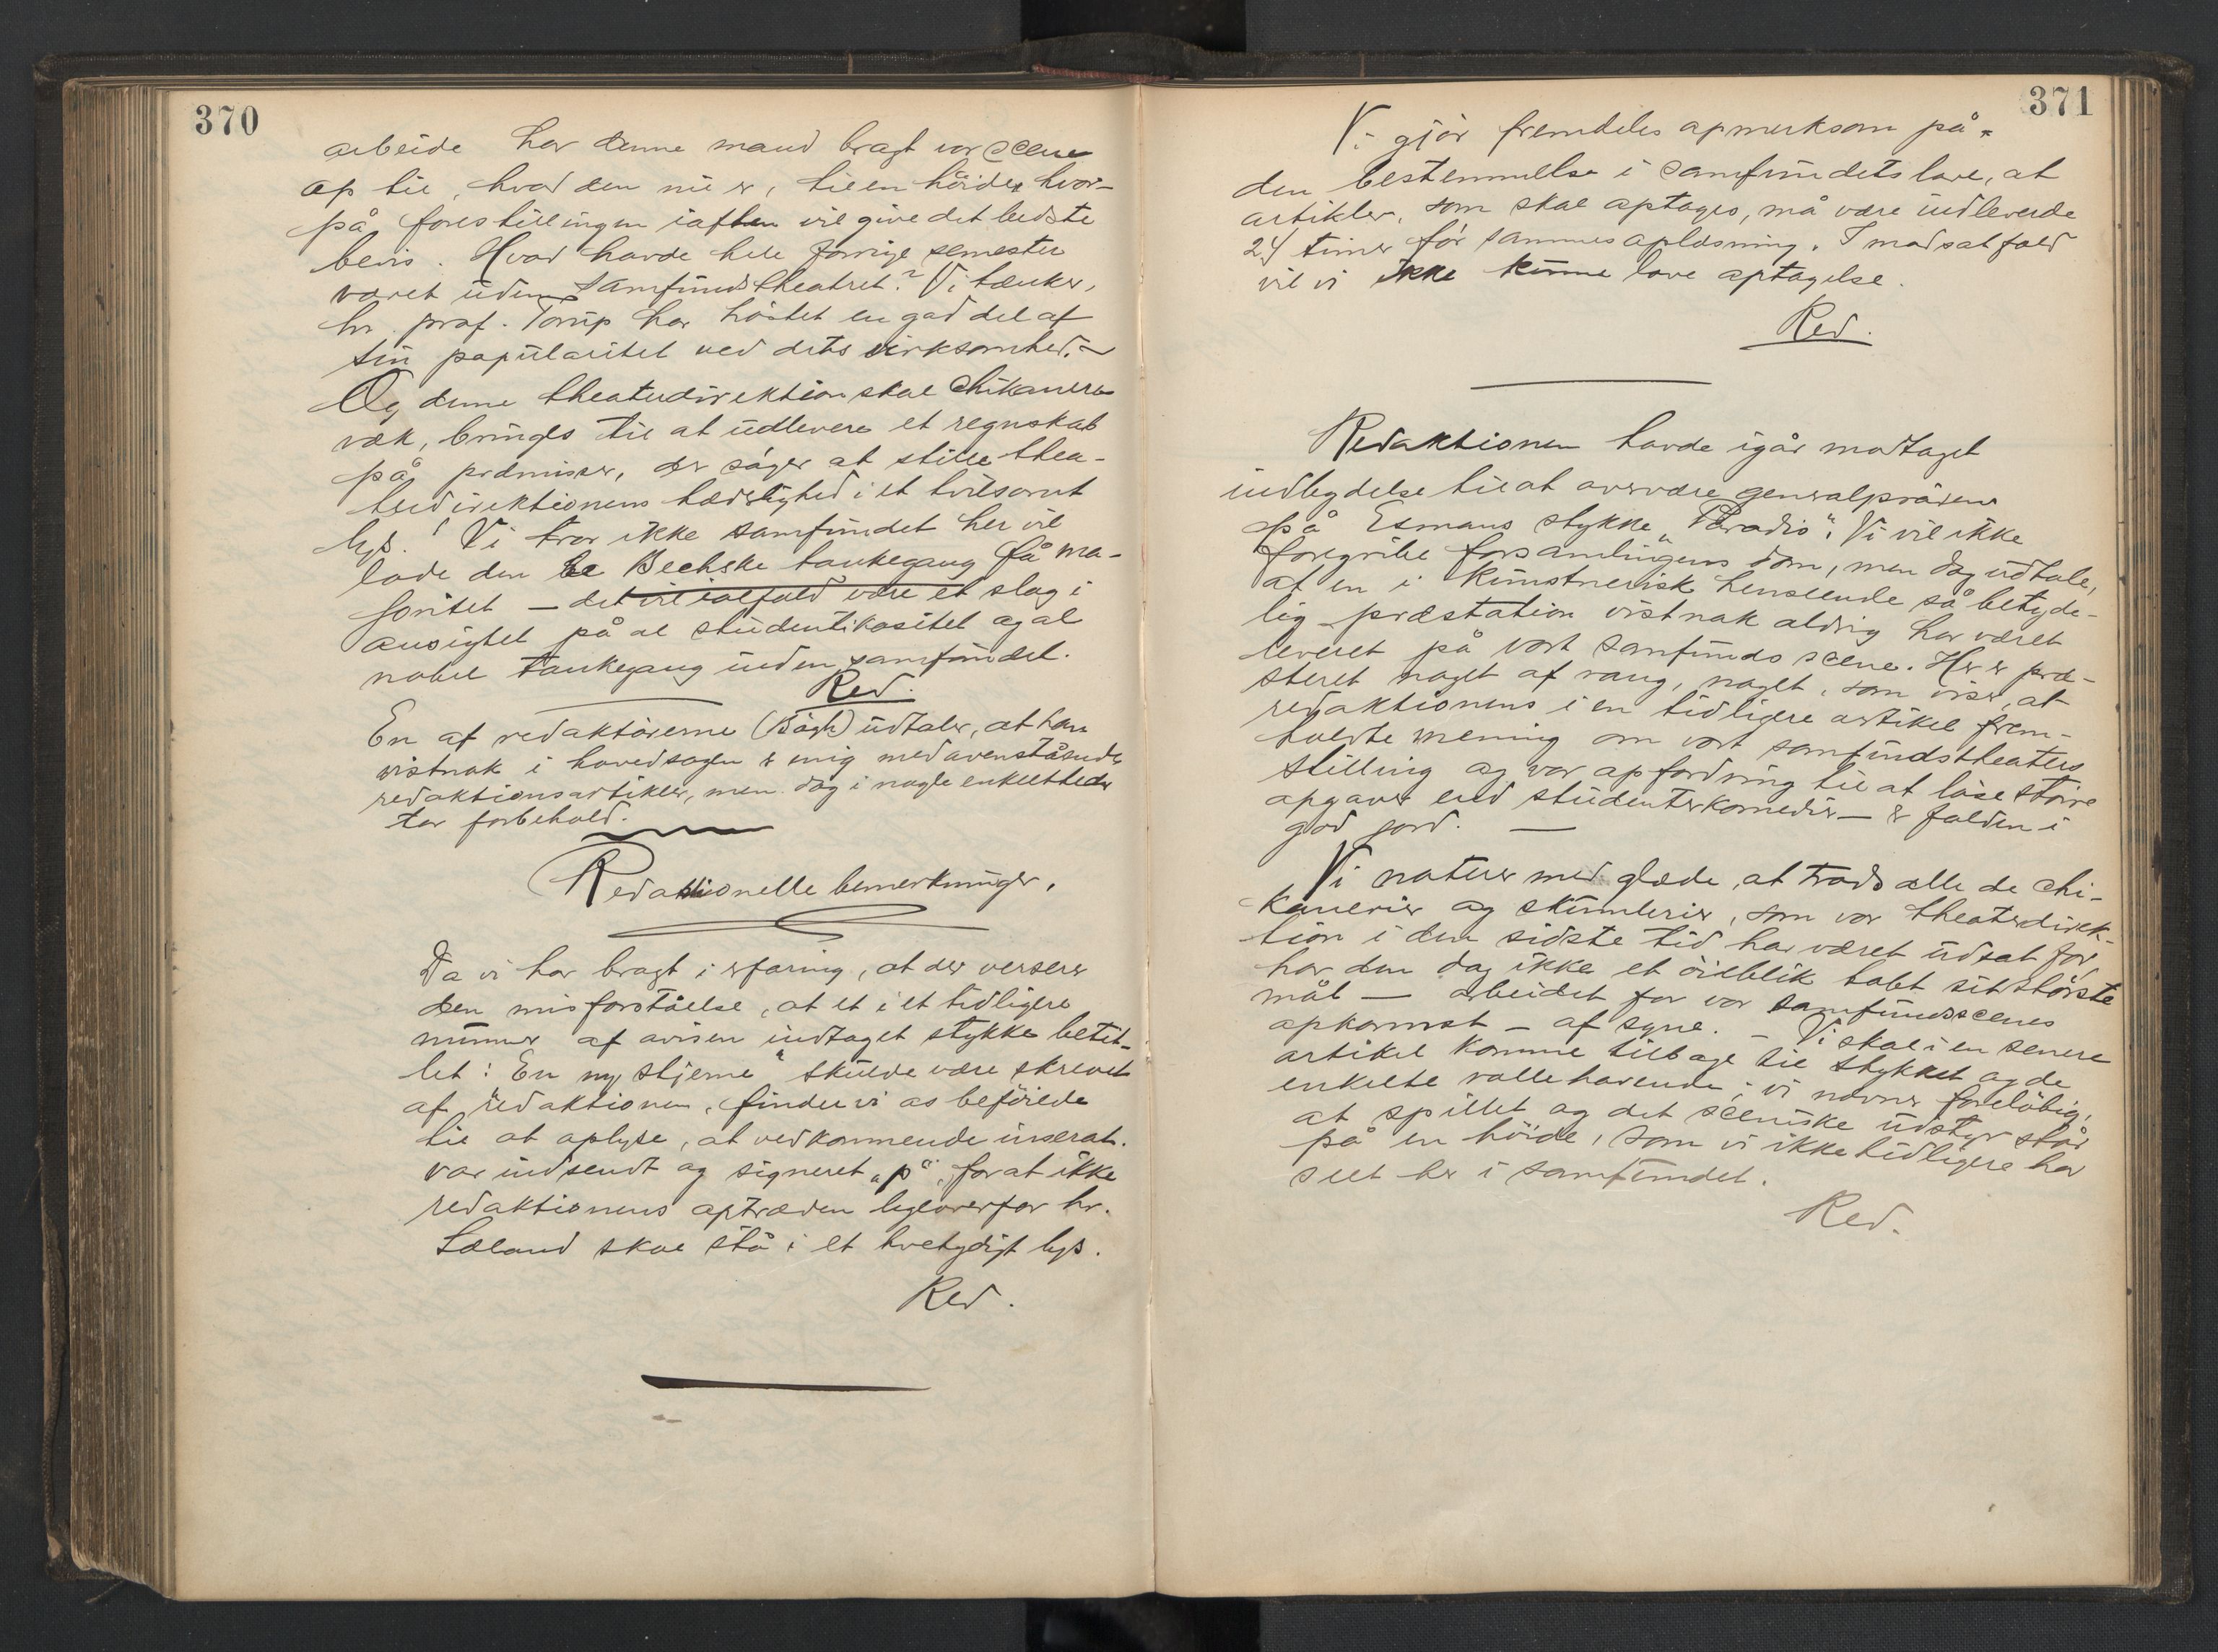 370
arbeide har denne mand bragt vor scene
op til, hvad den nu er, til en höide, hvor-
på forestillingen iaften vil give det bedste
bevis. Hvad havde hele forrige semester
været uden samfundstheatret? Vi tænker,
hr. prof. Torup har höstet en god del af
sin popularitet ved dets virksomhed. –
Og denne theaterdirektion skal chikaneres
væk, bringes til at udlevere et regnskab
på præmisser, der söger at stille thea-
terdirektionens hæderlighed i et tvilsomt
lys! Vi tror ikke samfundet her vil
lade den Bechske tankegang få ma-
joritet – det vil ialfald være et slag i
ansigtet på al studentikositet og al
nobel tankegang inden samfundet.
Red.
En af redaktörerne (Bögh) udtaler, at han
vistnok i hovedsagen er enig med ovenstående
redaktionsartikler, men dog i nogle enkeltheder
tar forbehold.
Redaktionelle bemerkninger.
Da vi har bragt i erfaring, at der verserer
den misforståelse, at et i et tidligere
nummer af avisen indtaget stykke betit-
let: "En ny stjerne" skulde være skrevet
af redaktionen, finder vi os beföiede
til at oplyse, at vedkommende inserat
var indsendt og signeret „p“, for at ikke
redaktionens optræden ligeoverfor hr.
Sæland skal stå i et tvetydigt lys.
Red.
371
Vi gjör fremdeles opmerksom på
den bestemmelse i samfundets love, at
artikler, som skal optages, må være indleverede
24 timer för sammes oplæsning. I modsat fald
vil vi ikke kunne love optagelse.
Red.
Redaktionen havde igår modtaget
indbydelse til at overvære generalpröven
på Esmans stykke „Paradis“. Vi vil ikke
foregribe forsamlingens dom, men dog udtale,
at en i kunstnerisk henseende så betyde-
lig præstation vistnok aldrig har været
leveret på vort samfunds scene. Her er præ-
steret noget af rang, noget, som viser, at
redaktionens i en tidligere artikel frem-
holdte mening om vort samfundstheaters
stilling og vor opfordring til at löse större
opgaver end studenterkomedier – er falden i
god jord. –
Vi noterer med glæde, at trods alle de chi-
kanerier og skumlerier, som vor theaterdirek-
tion i den sidste tid har været udsat for,
har den dog ikke et öieblik tabt sit störste
mål – arbeidet for vor samfundsscenes
opkomst – af syne. – Vi skal i en senere
artikel komme tilbage til stykket og de
enkelte rollehavende; vi nævner foreløbig,
at spillet og det sceniske udstyr står
på en höide, som vi ikke tidligere har
seet her i samfundet.
Red.